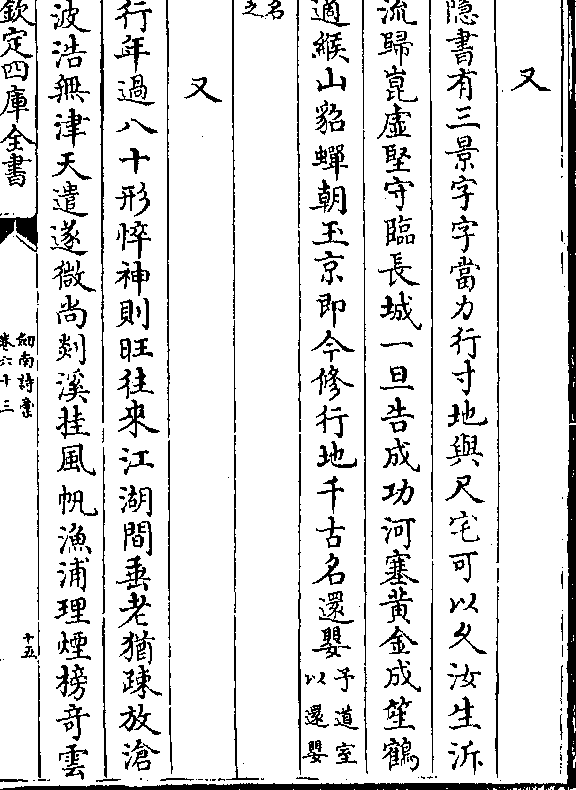 又
隱書有三景字字當力行寸地與尺宅可以久汝生泝
流歸崑虛堅守臨長城一旦告成功河塞黃金成笙鶴
過緱山貂蟬朝玉京即今修行地千古名還嬰予道室以還嬰
名之
又
行年過八十形悴神則旺往來江湖間垂老猶疎放滄
波浩無津天遣遂微尚剡溪挂風帆漁浦理煙榜奇雲
欽定四庫全書
劒南詩藁
卷六十三
十五